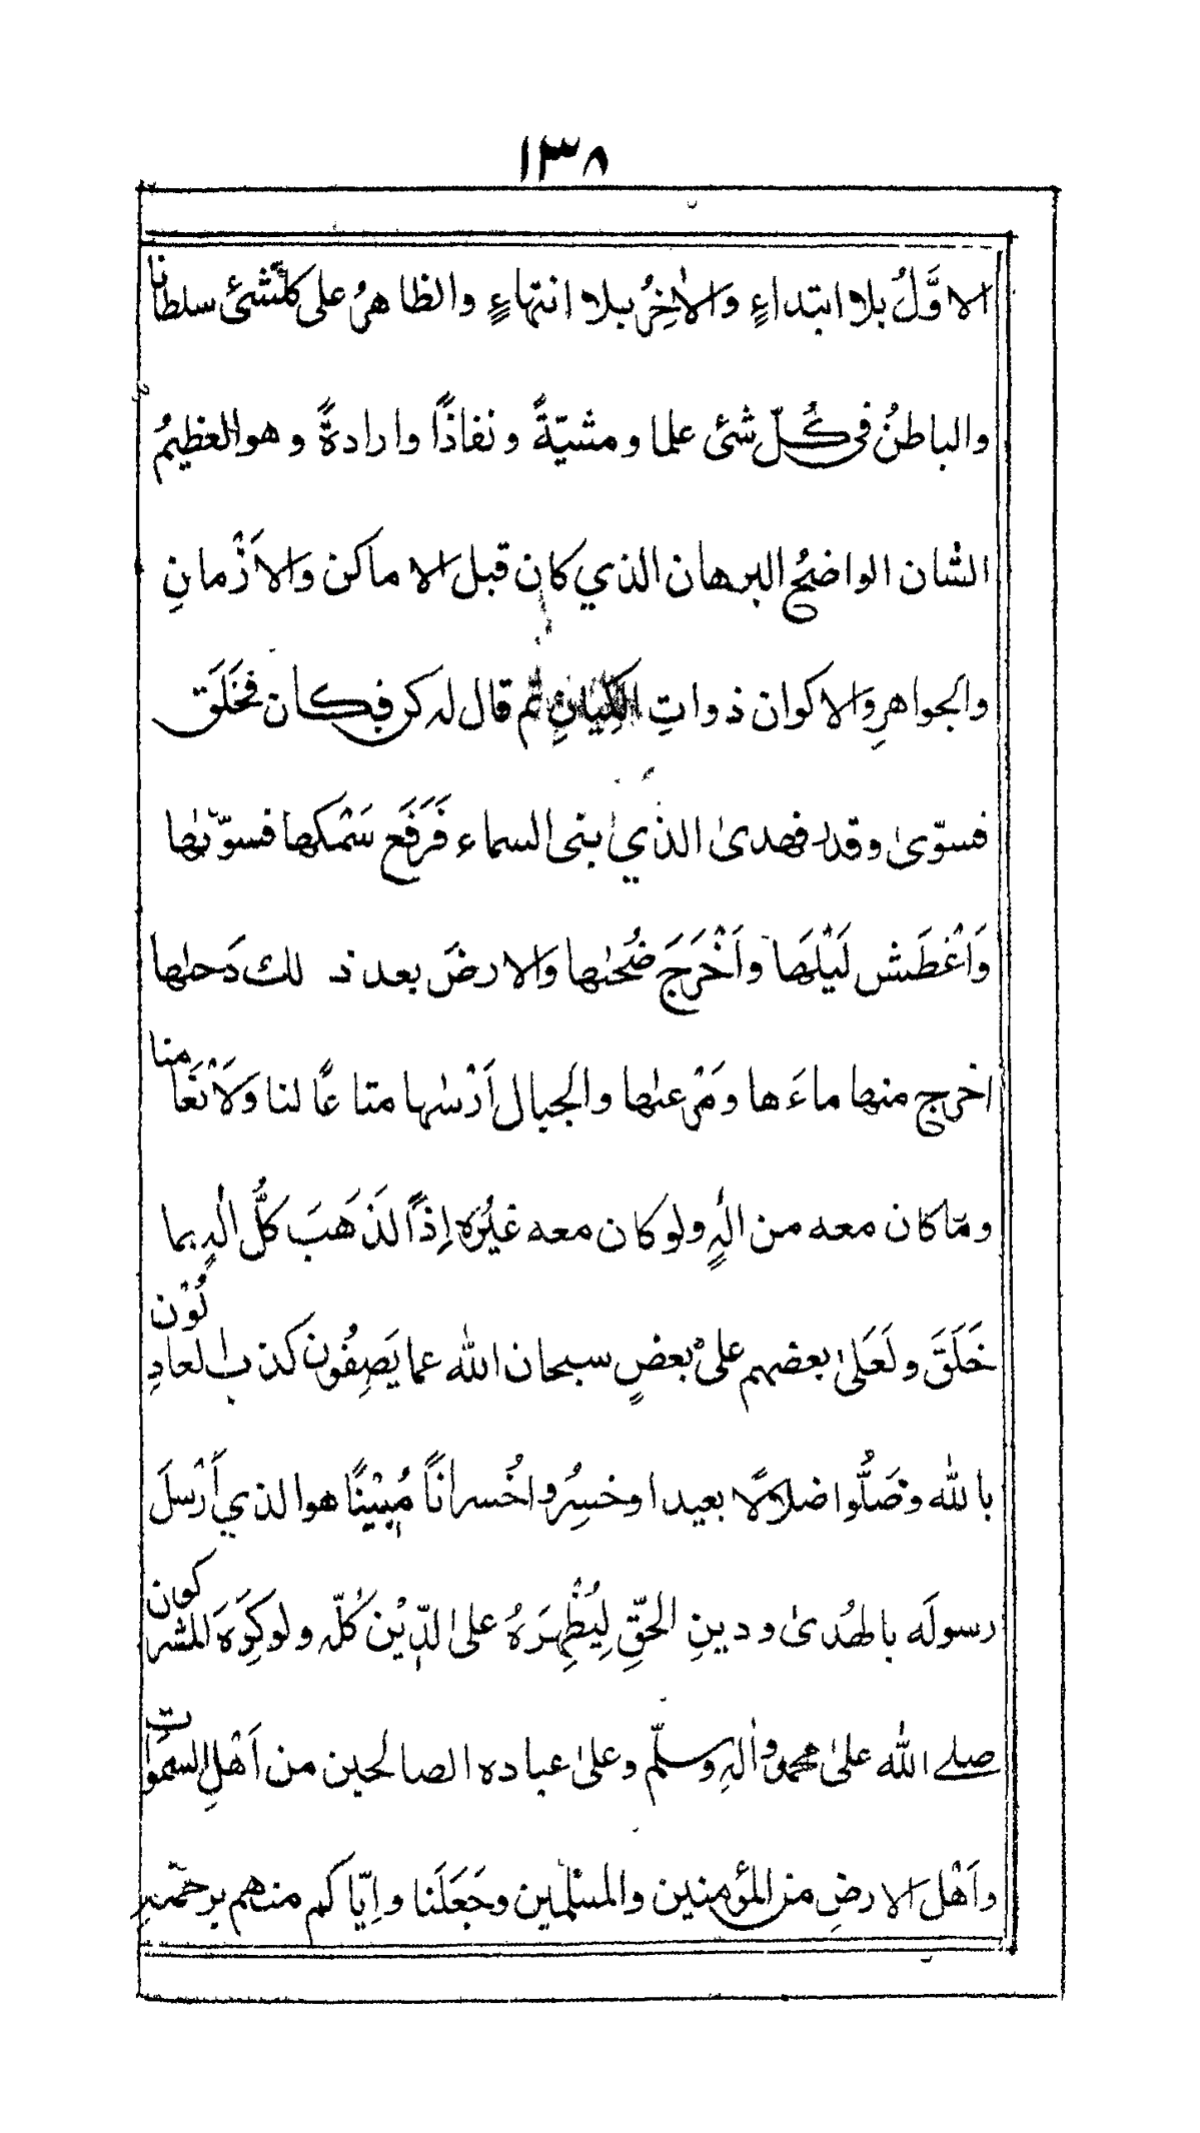 ١٣٨
الاوَّلُ بلا ابتداءٍ والاٰخِرُ بلا انتهاءٍ والظاهرُ على كلِّشئ سلطانا
والباطنُ في كُلّ شئ علما ومشيّةً ونفاذًا وارادةً وهو العظيمُ
الشان الواضحُ البرهان الذي كان قبل الاماكن والاَزْمانِ
والجواهرِ والاكوان ذواتِ الكِيانِ ثم قال له كن فكان فخَلَق
فسوّىٰ وقدر فهدىٰ الذي بنى السماء فَرَفَع سَمْكها فسوّىٰها
وَاَغْطَش لَيْلَها واَخْرَجَ ضُحىٰها والارضَ بعد ذلك دَحىٰها
اخرج منها ماءَها ومَرْعىٰها والجبال اَرْسٰها متاعًا لنا وَلاَنْعَامنا
وما كان معه من الٰهٍ ولو كان معه غيْرُه اِذًا لذَهَبَ كلُّ الٰهٍ بما
خَلَقَ ولَعَلىٰ بعضهم علىٰ بعضٍ سبحان اللّٰه عما يَصِفُون كذب العادِلُوْن
باللّٰه وضَلُّوا ضلالًا بعيدا وخسِرُوا خُسرانًا مُبِيْنًا هو الذي اَرْسلَ
رسولَه بالهُدىٰ ودينِ الحقّ لِيُظْهِرَهُ علىٰ الدِّيْن كُلّه ولو كَرِهَ المشركون
صلے اللّٰه علىٰ محمدٍ واٰلهِ وسلّم وعلىٰ عباده الصالحين من اَهْلِ السمٰوات
واَهْل الارضِ من المؤمنين والمسْلمين وجَعَلَنا وايّاكم منهم برحمته